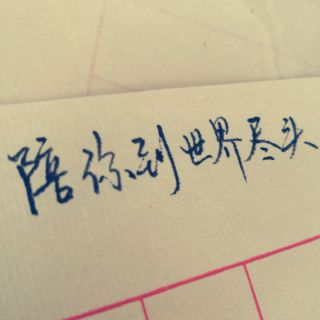 陪你到世界尽头